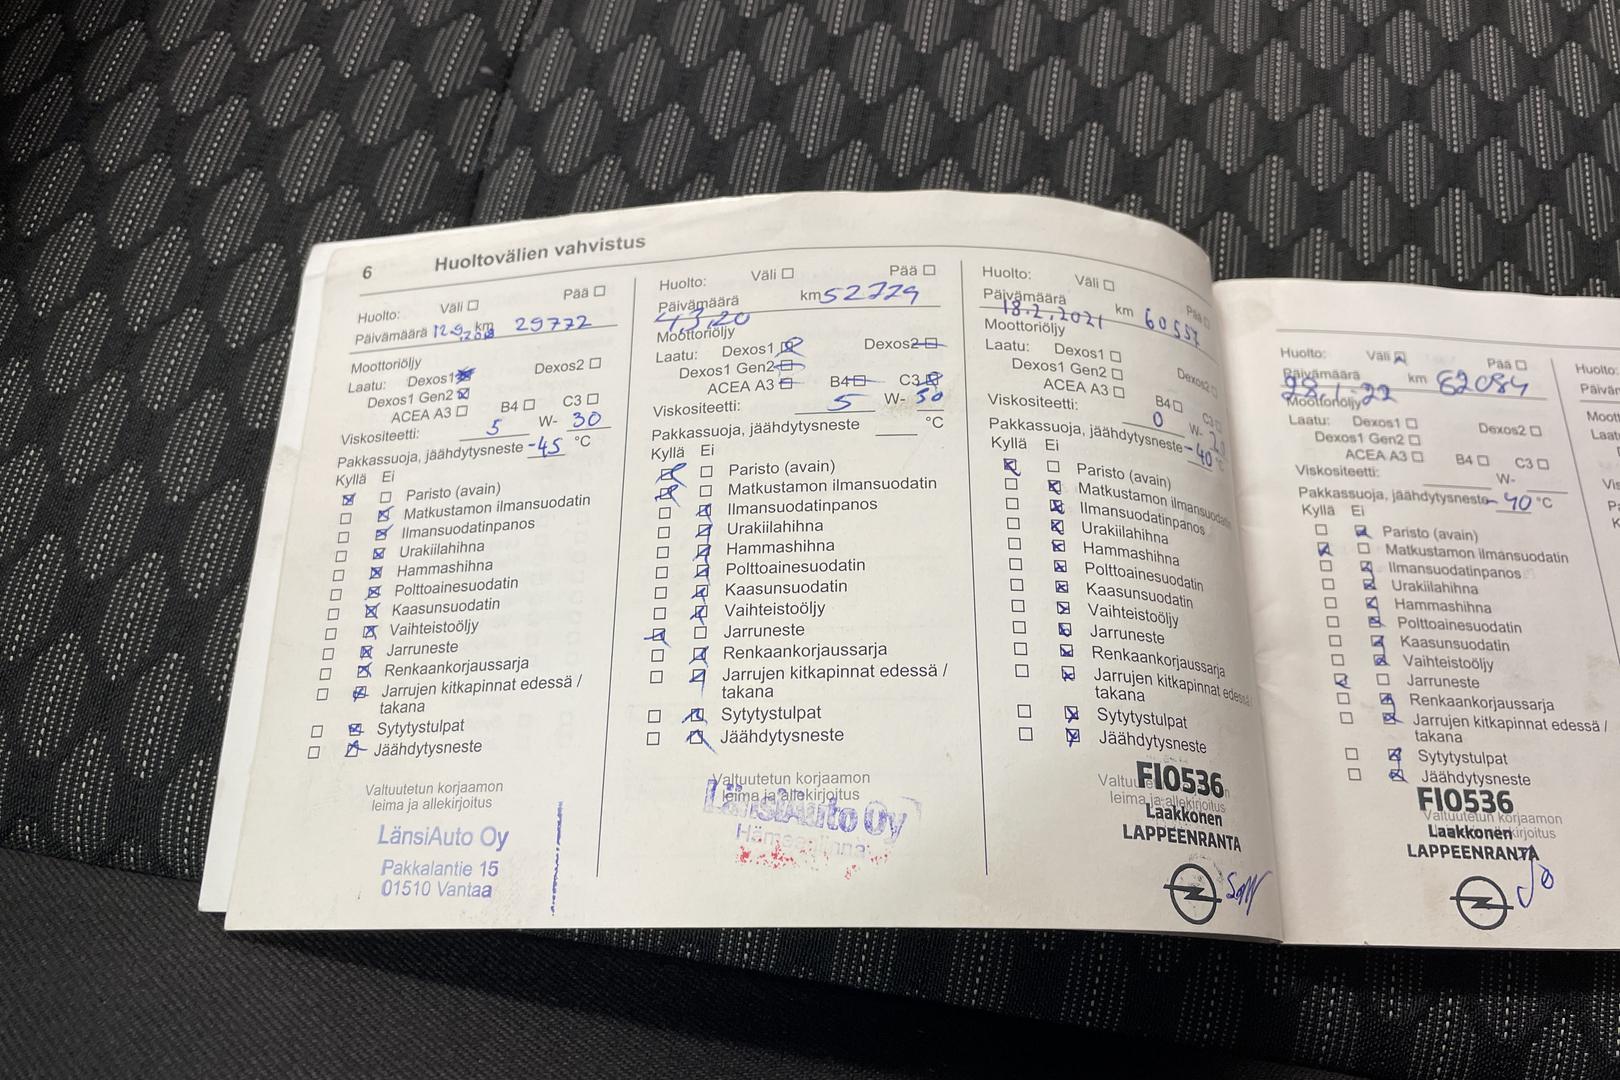 6 Huoltovälien vahvistus
Huolto: Väli Pää
Päivämäärä 12.9.2018 km 29772
Moottoriöljy
Laatu: Dexos1 Dexos2
Dexos1 Gen2
ACEA A3 B4 C3
Viskositeetti: 5 W- 30
Pakkassuoja, jäähdytysneste -45 °C
Kyllä Ei
Paristo (avain)
Matkustamon ilmansuodatin
Ilmansuodatinpanos
Urakiilahihna
Hammashihna
Polttoainesuodatin
Kaasunsuodatin
Vaihteistoöljy
Jarruneste
Renkaankorjaussarja
Jarrujen kitkapinnat edessä /
takana
Sytytystulpat
Jäähdytysneste
Valtuutetun korjaamon
leima ja allekirjoitus
LänsiAuto Oy
Pakkalantie 15
01510 Vantaa
Huolto: Väli Pää
Päivämäärä km 52729
4.3.20
Moottoriöljy
Laatu: Dexos1 Dexos2
Dexos1 Gen2
ACEA A3 B4 C3
Viskositeetti: 5 W- 30
Pakkassuoja, jäähdytysneste °C
Kyllä Ei
Paristo (avain)
Matkustamon ilmansuodatin
Ilmansuodatinpanos
Urakiilahihna
Hammashihna
Polttoainesuodatin
Kaasunsuodatin
Vaihteistoöljy
Jarruneste
Renkaankorjaussarja
Jarrujen kitkapinnat edessä /
takana
Sytytystulpat
Jäähdytysneste
Valtuutetun korjaamon
leima ja allekirjoitus
LänsiAuto Oy
Hämeenlinna
Huolto: Väli Pää
Päivämäärä km 60557
18.2.2021
Moottoriöljy
Laatu: Dexos1 Dexos2
Dexos1 Gen2
ACEA A3 B4 C3
Viskositeetti: 0 W- 20
Pakkassuoja, jäähdytysneste -40 °C
Kyllä Ei
Paristo (avain)
Matkustamon ilmansuodatin
Ilmansuodatinpanos
Urakiilahihna
Hammashihna
Polttoainesuodatin
Kaasunsuodatin
Vaihteistoöljy
Jarruneste
Renkaankorjaussarja
Jarrujen kitkapinnat edessä /
takana
Sytytystulpat
Jäähdytysneste
FI0536
leima ja allekirjoitus
Laakkonen
LAPPEENRANTA
Huolto: Väli Pää
Päivämäärä km 62084
28.1.22
Moottoriöljy
Laatu: Dexos1 Dexos2
Dexos1 Gen2
ACEA A3 B4 C3
Viskositeetti: W-
Pakkassuoja, jäähdytysneste -40 °C
Kyllä Ei
Paristo (avain)
Matkustamon ilmansuodatin
Ilmansuodatinpanos
Urakiilahihna
Hammashihna
Polttoainesuodatin
Kaasunsuodatin
Vaihteistoöljy
Jarruneste
Renkaankorjaussarja
Jarrujen kitkapinnat edessä /
takana
Sytytystulpat
Jäähdytysneste
FI0536
Valtuutetun korjaamon
Laakkonen
LAPPEENRANTA
Huolto: